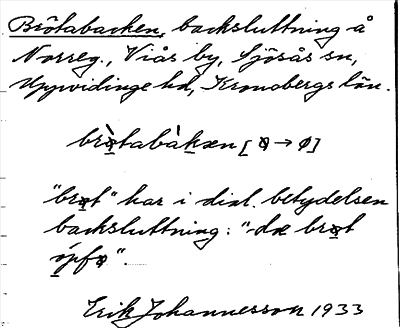 Brötabacken, backsluttning å
Norreg., Viås by, Sjösås sn,
Uppvidinge hd, Kronobergs län.
brø̀tabàkæn [ø → ø]
"brøt" har i dial. betydelsen
backsluttning: "-dæ brøt
ípfø".
Erik Johannesson 1933